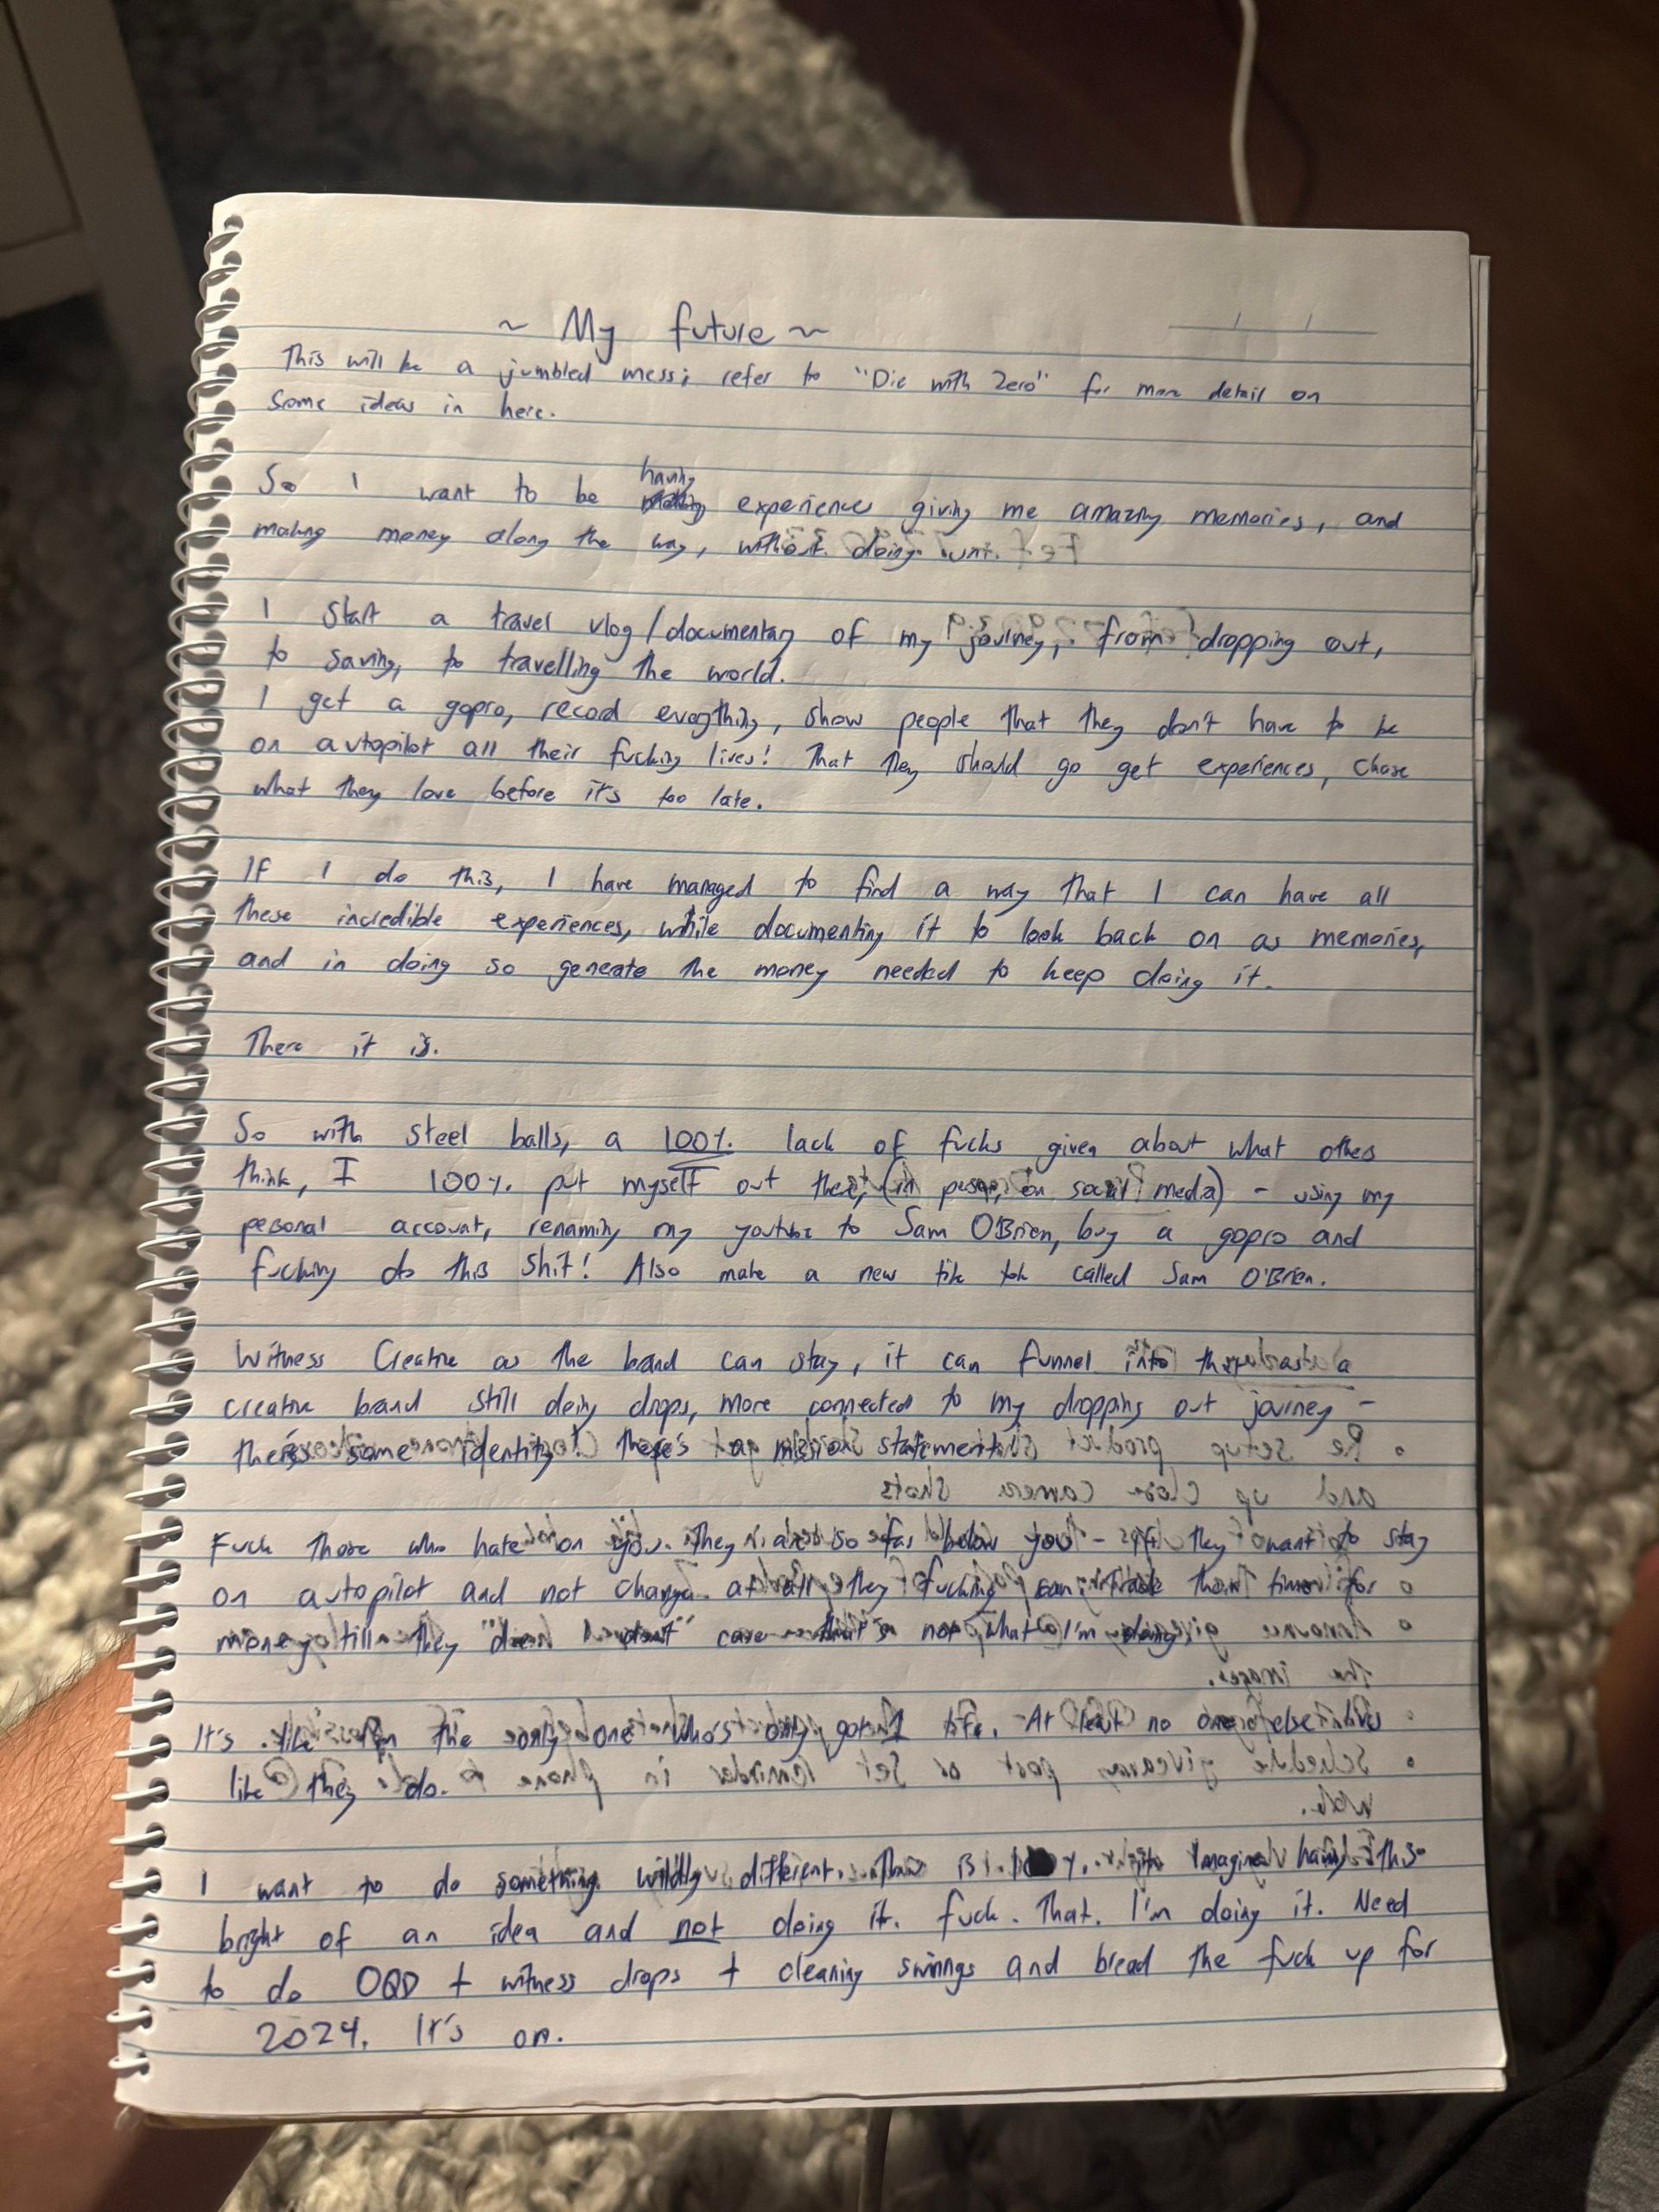 ~ My future ~
This will be a jumbled mess; refer to "Die with Zero" for more detail on
some ideas in here.
So I want to be having experiences giving me amazing memories, and
making money along the way, without doing uni.
I start a travel vlog/documentary of my journey, from dropping out,
to saving, to travelling the world.
I get a gopro, record everything, show people that they don't have to be
on autopilot all their fucking lives! That they should go get experiences, chase
what they love before it's too late.
If I do this, I have managed to find a way that I can have all
these incredible experiences, while documenting it to look back on as memories,
and in doing so generate the money needed to keep doing it.
There it is.
So with steel balls, a 100% lack of fucks given about what others
think, I 100% put myself out there, (in person, on social media) - using my
personal account, renaming my youtube to Sam O'Brien, buy a gopro and
fucking do this shit! Also make a new tik tok called Sam O'Brien.
Witness Creative as the brand can stay, it can funnel into that as a
creative brand still doing drops, more connected to my dropping out journey -
there's some identity there's a mission statement
Fuck those who hate on you. They are so far below you - if they want to stay
on autopilot and not change at all they fucking can; trade their time for
money till they "die" I don't care that's not what I'm doing.
It's like I'm the only one who's only got 1 life. At least no one else
like they do.
I want to do something wildly different. This is it. Imagine having this
bright of an idea and not doing it. fuck. That. I'm doing it. Need
to do OQD + witness drops + cleaning swings and bread the fuck up for
2024. It's on.